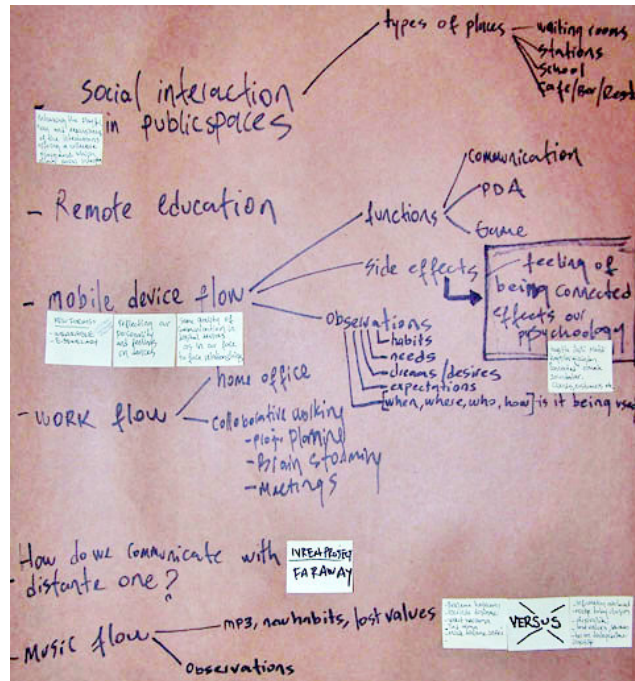 types of places
waiting rooms
stations
school
cafe/Bar/Rest
social interaction
in publicspaces
- Remote education
functions
communication
PDA
Game
- mobile device flow
side effects
feeling of
being connected
effects our
psychology
observations
habits
needs
dreams/desires
expectations
[when, where, who, how] is it being used
- WEARABLE
reflecting our
personality
and feelings
on devices
same quality of
communication in
digital
as in our face
to face relationship
- WORK FLOW
home office
collaborative working
- planning
- Brain storming
- Meetings
- How do we communicate with
distante one?
IVREA PROJECT
FARAWAY
- MUSIC flow
mp3, new habits, lost values
observations
VERSUS